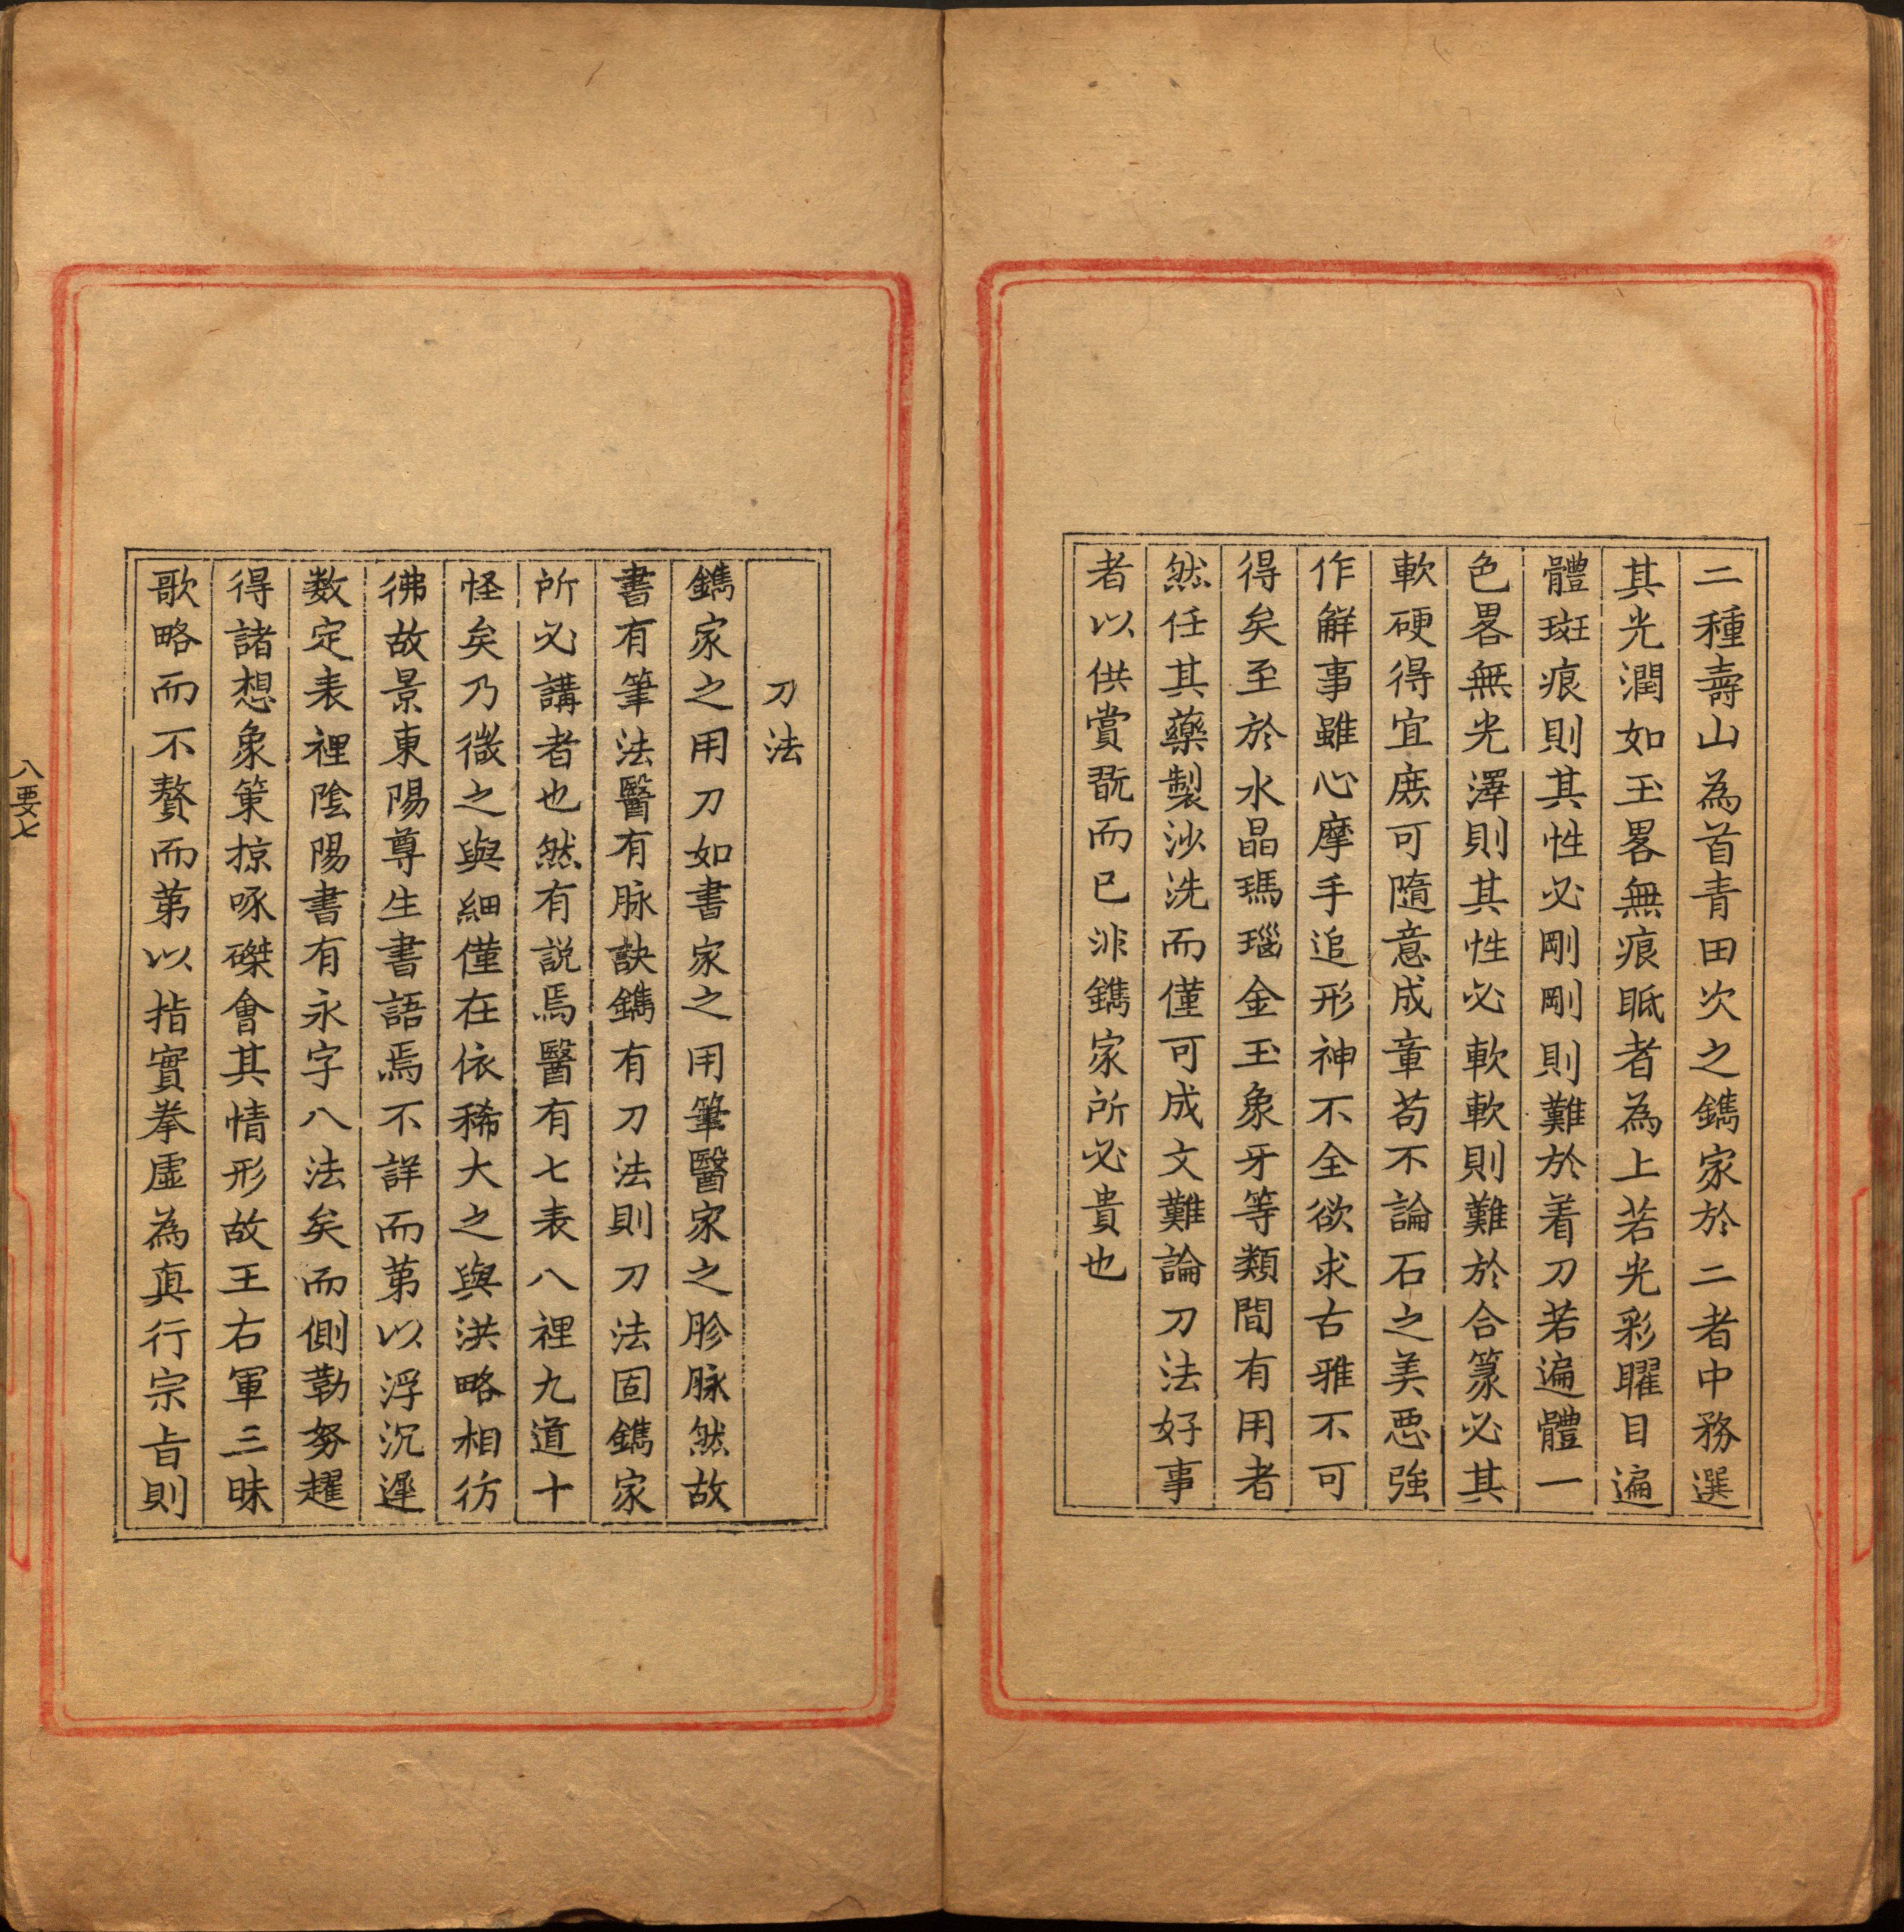 二種壽山為首青田次之鐫家於二者中務選
其光潤如玉畧無痕眡者為上若光彩曜目遍
體斑痕則其性必剛剛則難於着刀若遍體一
色畧無光澤則其性必軟軟則難於合篆必其
軟硬得宜庶可隨意成章苟不論石之美惡強
作解事雖心摩手追形神不全欲求古雅不可
得矣至於水晶瑪瑙金玉象牙等類間有用者
然任其藥製沙洗而僅可成文難論刀法好事
者以供賞翫而已非鐫家所必貴也
刀法
鐫家之用刀如書家之用筆醫家之胗脉然故
書有筆法醫有脉訣鐫有刀法則刀法固鐫家
所必講者也然有説焉醫有七表八裡九道十
怪矣乃微之與細僅在依稀大之與洪略相彷
彿故景東陽尊生書語焉不詳而第以浮沉遲
数定表裡陰陽書有永字八法矣而側勒努趯
得諸想象策掠啄磔會其情形故王右軍三昧
歌略而不贅而第以指實拳虛為真行宗旨則
八要七